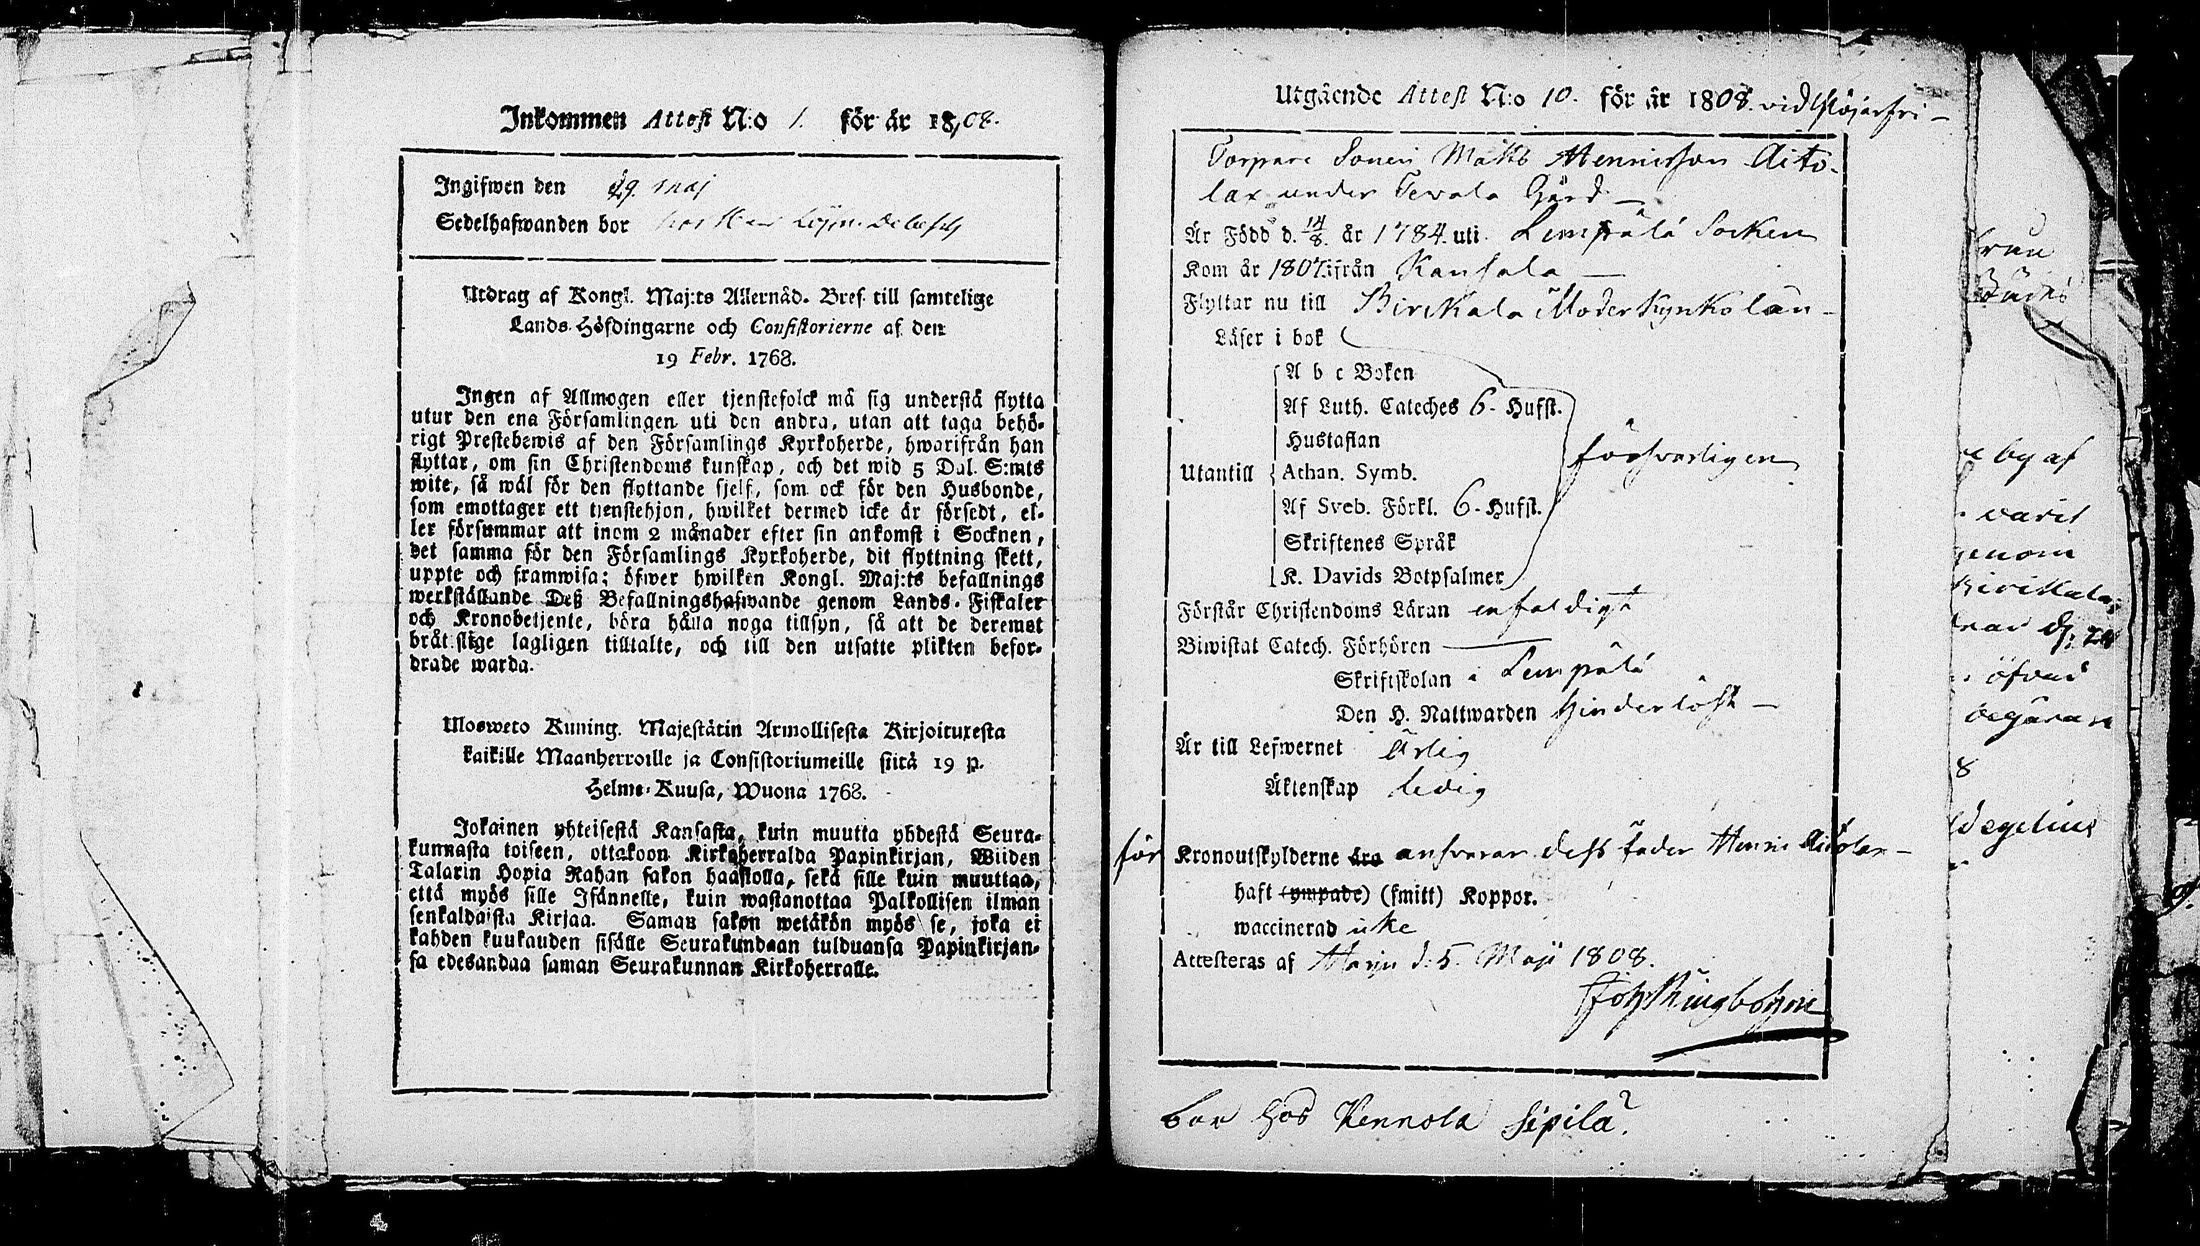 Inkommen Attest N:o 1. för år 1808.
Ingifwen den 29. maj
Sedelhafwanden bor hos Herr
Utdrag af Kongl. Maj:ts Allernåd. Bref till samtelige
Lands-Höfdingarne och Consistorierne af den
19 Febr. 1768.
Ingen af Allmogen eller tjenstefolck må sig understå flytta
utur den ena Församlingen uti den andra, utan att taga behö-
rigt Prestebewis af den Församlings Kyrkoherde, hwarifrån han
flyttar, om sin Christendoms kunskap, och det wid 5 Dal. S:mts
wite, så wäl för den flyttande sjelf, som ock för den Husbonde,
som emottager ett tjenstehjon, hwilket dermed icke är försedt, el-
ler försummar att inom 2 månader efter sin ankomst i Socknen,
det samma för den Församlings Kyrkoherde, dit flyttning skett,
uppte och framwisa; öfwer hwilken Kongl. Maj:ts befallnings
werkställande Deß Befallningshafwande genom Lands-Fiskaler
och Kronobetjente, böra hålla noga tillsyn, så att de deremot
bråtslige lagligen tilltalte, och till den utsatte plikten befor-
drade warda.
Ulosweto Kuning. Majestätin Armollisesta Kirjoituxesta
kaikille Maanherroille ja Consistoriumeille siitä 19 p.
Helme-Kuusa, Wuona 1768.
Jokainen yhteisestä Kansasta, kuin muutta yhdestä Seura-
kunnasta toiseen, ottakoon Kirkoherralda Papinkirjan, Wiiden
Talarin Hopia Rahan sakon haastolla, sekä sille kuin muuttaa,
että myös sille Isännelle, kuin wastanottaa Palkollisen ilman
senkaldaista Kirjaa. Saman sakon wetäkön myös se, joka ei
kahden kuukauden sisälle Seurakundaan tulduansa Papinkirjan-
sa edesandaa saman Seurakunnan Kirkoherralle.
Utgående Attest N:o 10. för år 1808.
Torpare Sonen Matts Hennirsson Aito-
lax under Tewala Gård
Är Född d. 14/8. år 1784. uti Lempälä Socken
Kom år 1807. ifrån Kansala
Flyttar nu till Birckala Moderkyrko
Läser i bok
Utantill
A b c Boken
Af Luth. Cateches 6 - Hufst.
Hustaflan
Athan. Symb.
Af Sveb. Förkl. 6 - Hufst.
Skriftenes Språk
K. Davids Botpsalmer
försvarligen
Förstår Christendoms Läran enfaldigt
Biwistat Catech. Förhören
Skriftskolan i Lempälä
Den H. Nattwarden hinderlöst
Är till Lefwernet ärlig
Äktenskap ledig
för Kronoutskylderne äro ansvarar dess fader Henric Aitolax
haft (ympade) (smitt) Koppor.
waccinerad icke
Attesteras af Harju d. 5. Maji 1808.
Joh Ringbohm
bor hos Kennola Sipilä